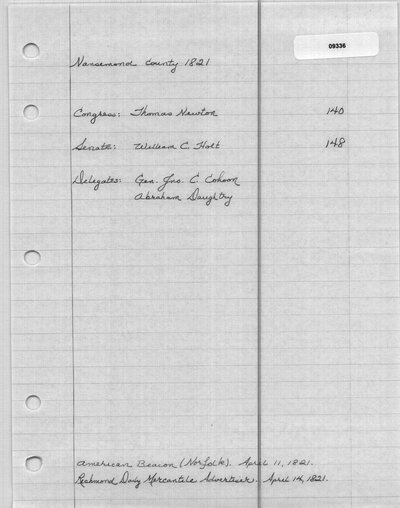 09336
Nansemond County 1821
Congress: Thomas Newton 140
Senate: William C. Holt 148
Delegates: Gen. Jno. C. Cohoon
Abraham Daughtry
American Beacon (Norfolk). April 11, 1821.
Richmond Daily Mercantile Advertiser. April 14, 1821.